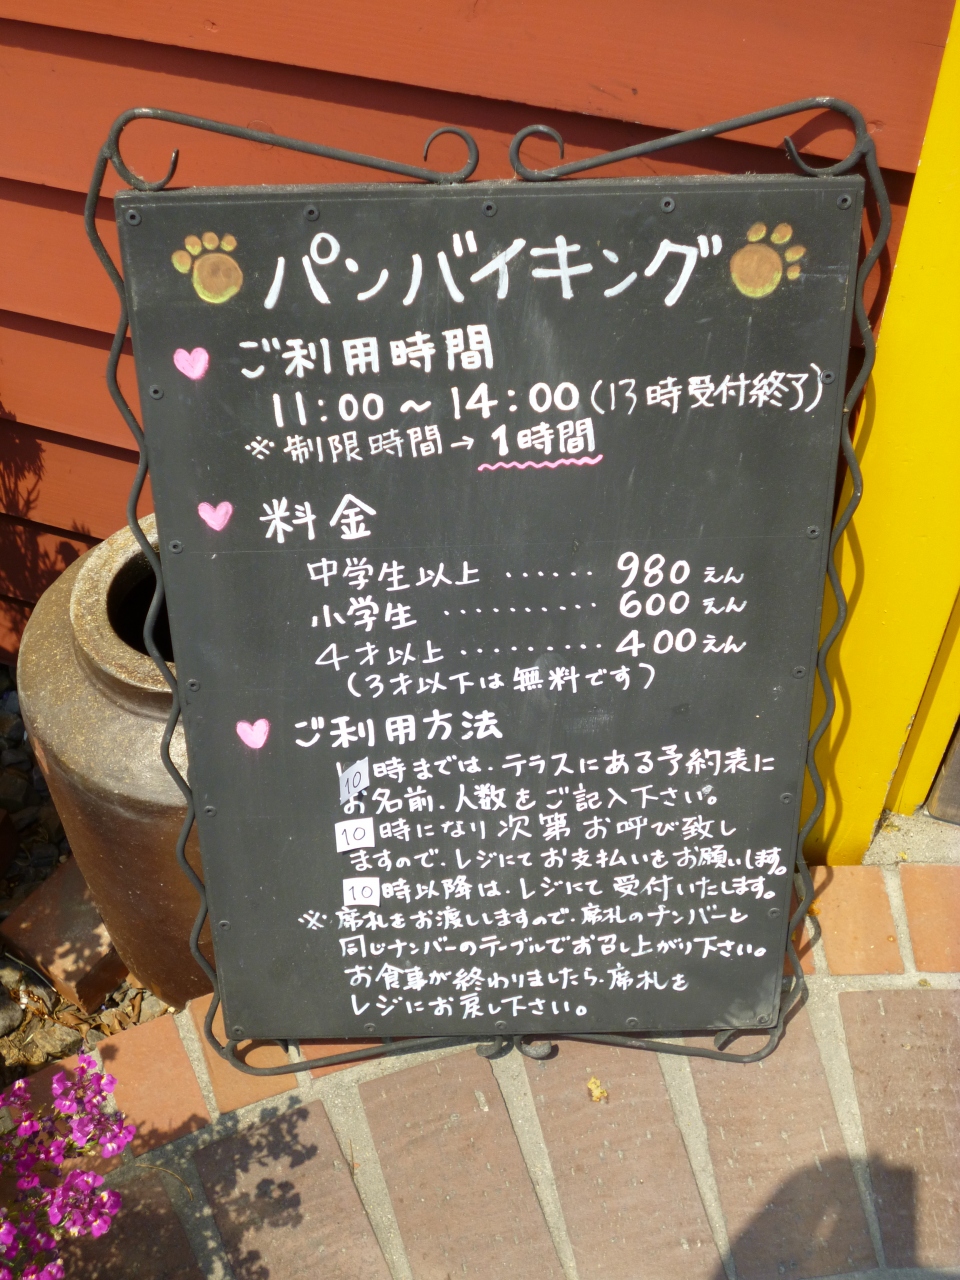 パンバイキング
ご利用時間
11:00～14:00(13時受付終了)
※制限時間→1時間
料金
中学生以上 ‥‥‥ 980えん
小学生 ‥‥‥‥‥ 600えん
4才以上 ‥‥‥‥‥ 400えん
(3才以下は無料です)
ご利用方法
10時までは、テラスにある予約表に
お名前、人数をご記入下さい。
10時になり次第お呼び致し
ますので、レジにてお支払いをお願いします。
10時以降は、レジにて受付いたします。
※席札をお渡ししますので、席札のナンバーと
同じナンバーのテーブルでお召し上がり下さい。
お食事が終わりましたら、席札を
レジにお戻し下さい。